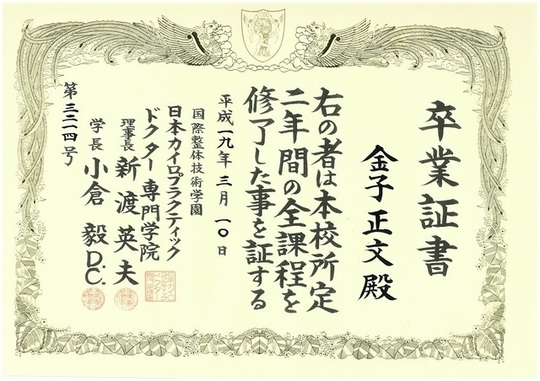 卒業証書
金子正文殿
右の者は本校所定
二年間の全課程を
修了した事を証する
平成一九年三月一〇日
国際整体技術学園
日本カイロプラクティック
ドクター専門学院
理事長 新渡英夫
学長 小倉毅 D.C.
第三二一四号